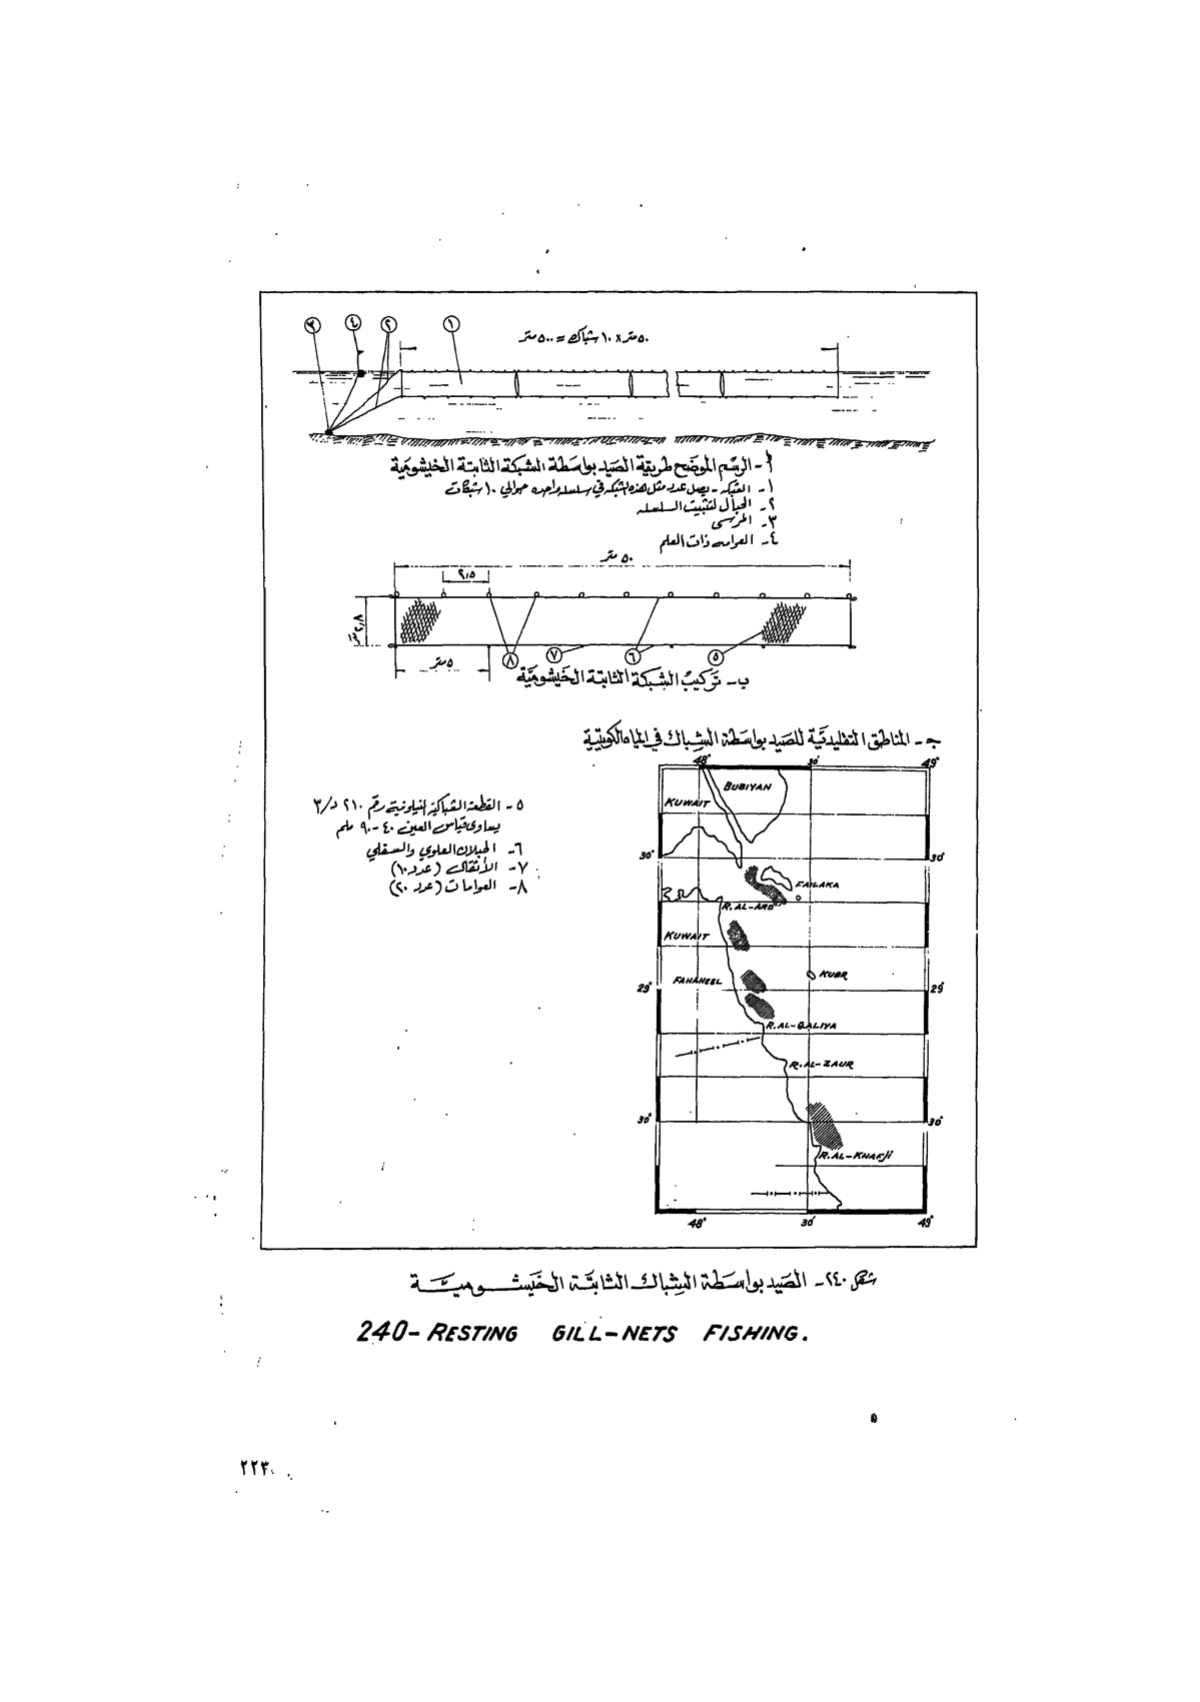 ٣ ٤ ٢ ١
٥٠ متر x ١٠ شباك = ٥٠٠ متر
أ - الرسم الموضح طريقة الصيد بواسطة الشبكة الثابتة الخيشومية
١- الشبكه - يصل عدد مثل هذه الشبكه في سلسله واحده حوالي ١٠ شبكات
٢- الحبال لتثبيت السلسله
٣- المرسى
٤- العوامه ذات العلم
٥٠ متر
٢,٥
٢,٨ متر
٥ متر
٨ ٧ ٦ ٥
ب - تركيب الشبكة الثابتة الخيشومية
ج - المناطق التقليدية للصيد بواسطة الشباك في المياه الكويتية
٥- القطعة الشباكية النيلونية رقم ٢١٠ د/٣
يساوي قياس العين ٤٠-٩٠ ملم
٦- الحبلان العلوي والسفلي
٧- الأثقال (عدد ١٠)
٨- العوامات (عدد ٢٠)
48° 30' 49°
BUBIYAN
KUWAIT
30° 30°
FAILAKA
R. AL-ARD
KUWAIT
KUBR
FAHAHEEL
29° 29°
R. AL-QALIYA
R. AL-ZAUR
30° 30°
R. AL-KHAFJI
48° 30' 49°
شكل ٢٤٠- الصيد بواسطة الشباك الثابتة الخيشومية
240- RESTING GILL-NETS FISHING.
٢٢٣